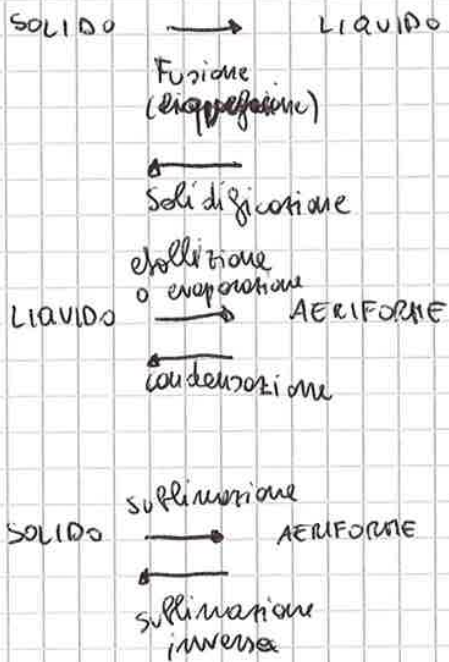 SOLIDO → LIQUIDO
Fusione
(liquefazione)
←
Solidificazione
ebollizione
o evaporazione
LIQUIDO → AERIFORME
←
condensazione
sublimazione
SOLIDO → AERIFORME
←
sublimazione
inversa